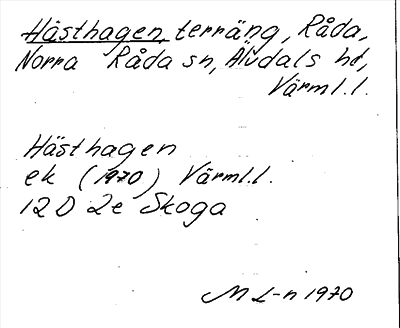 Hästhagen, terräng, Råda,
Norra Råda sn, Älvdals hd,
Värml.l.
Hästhagen
ek (1970) Värml.l.
12D 2e Skoga
M L-n 1970